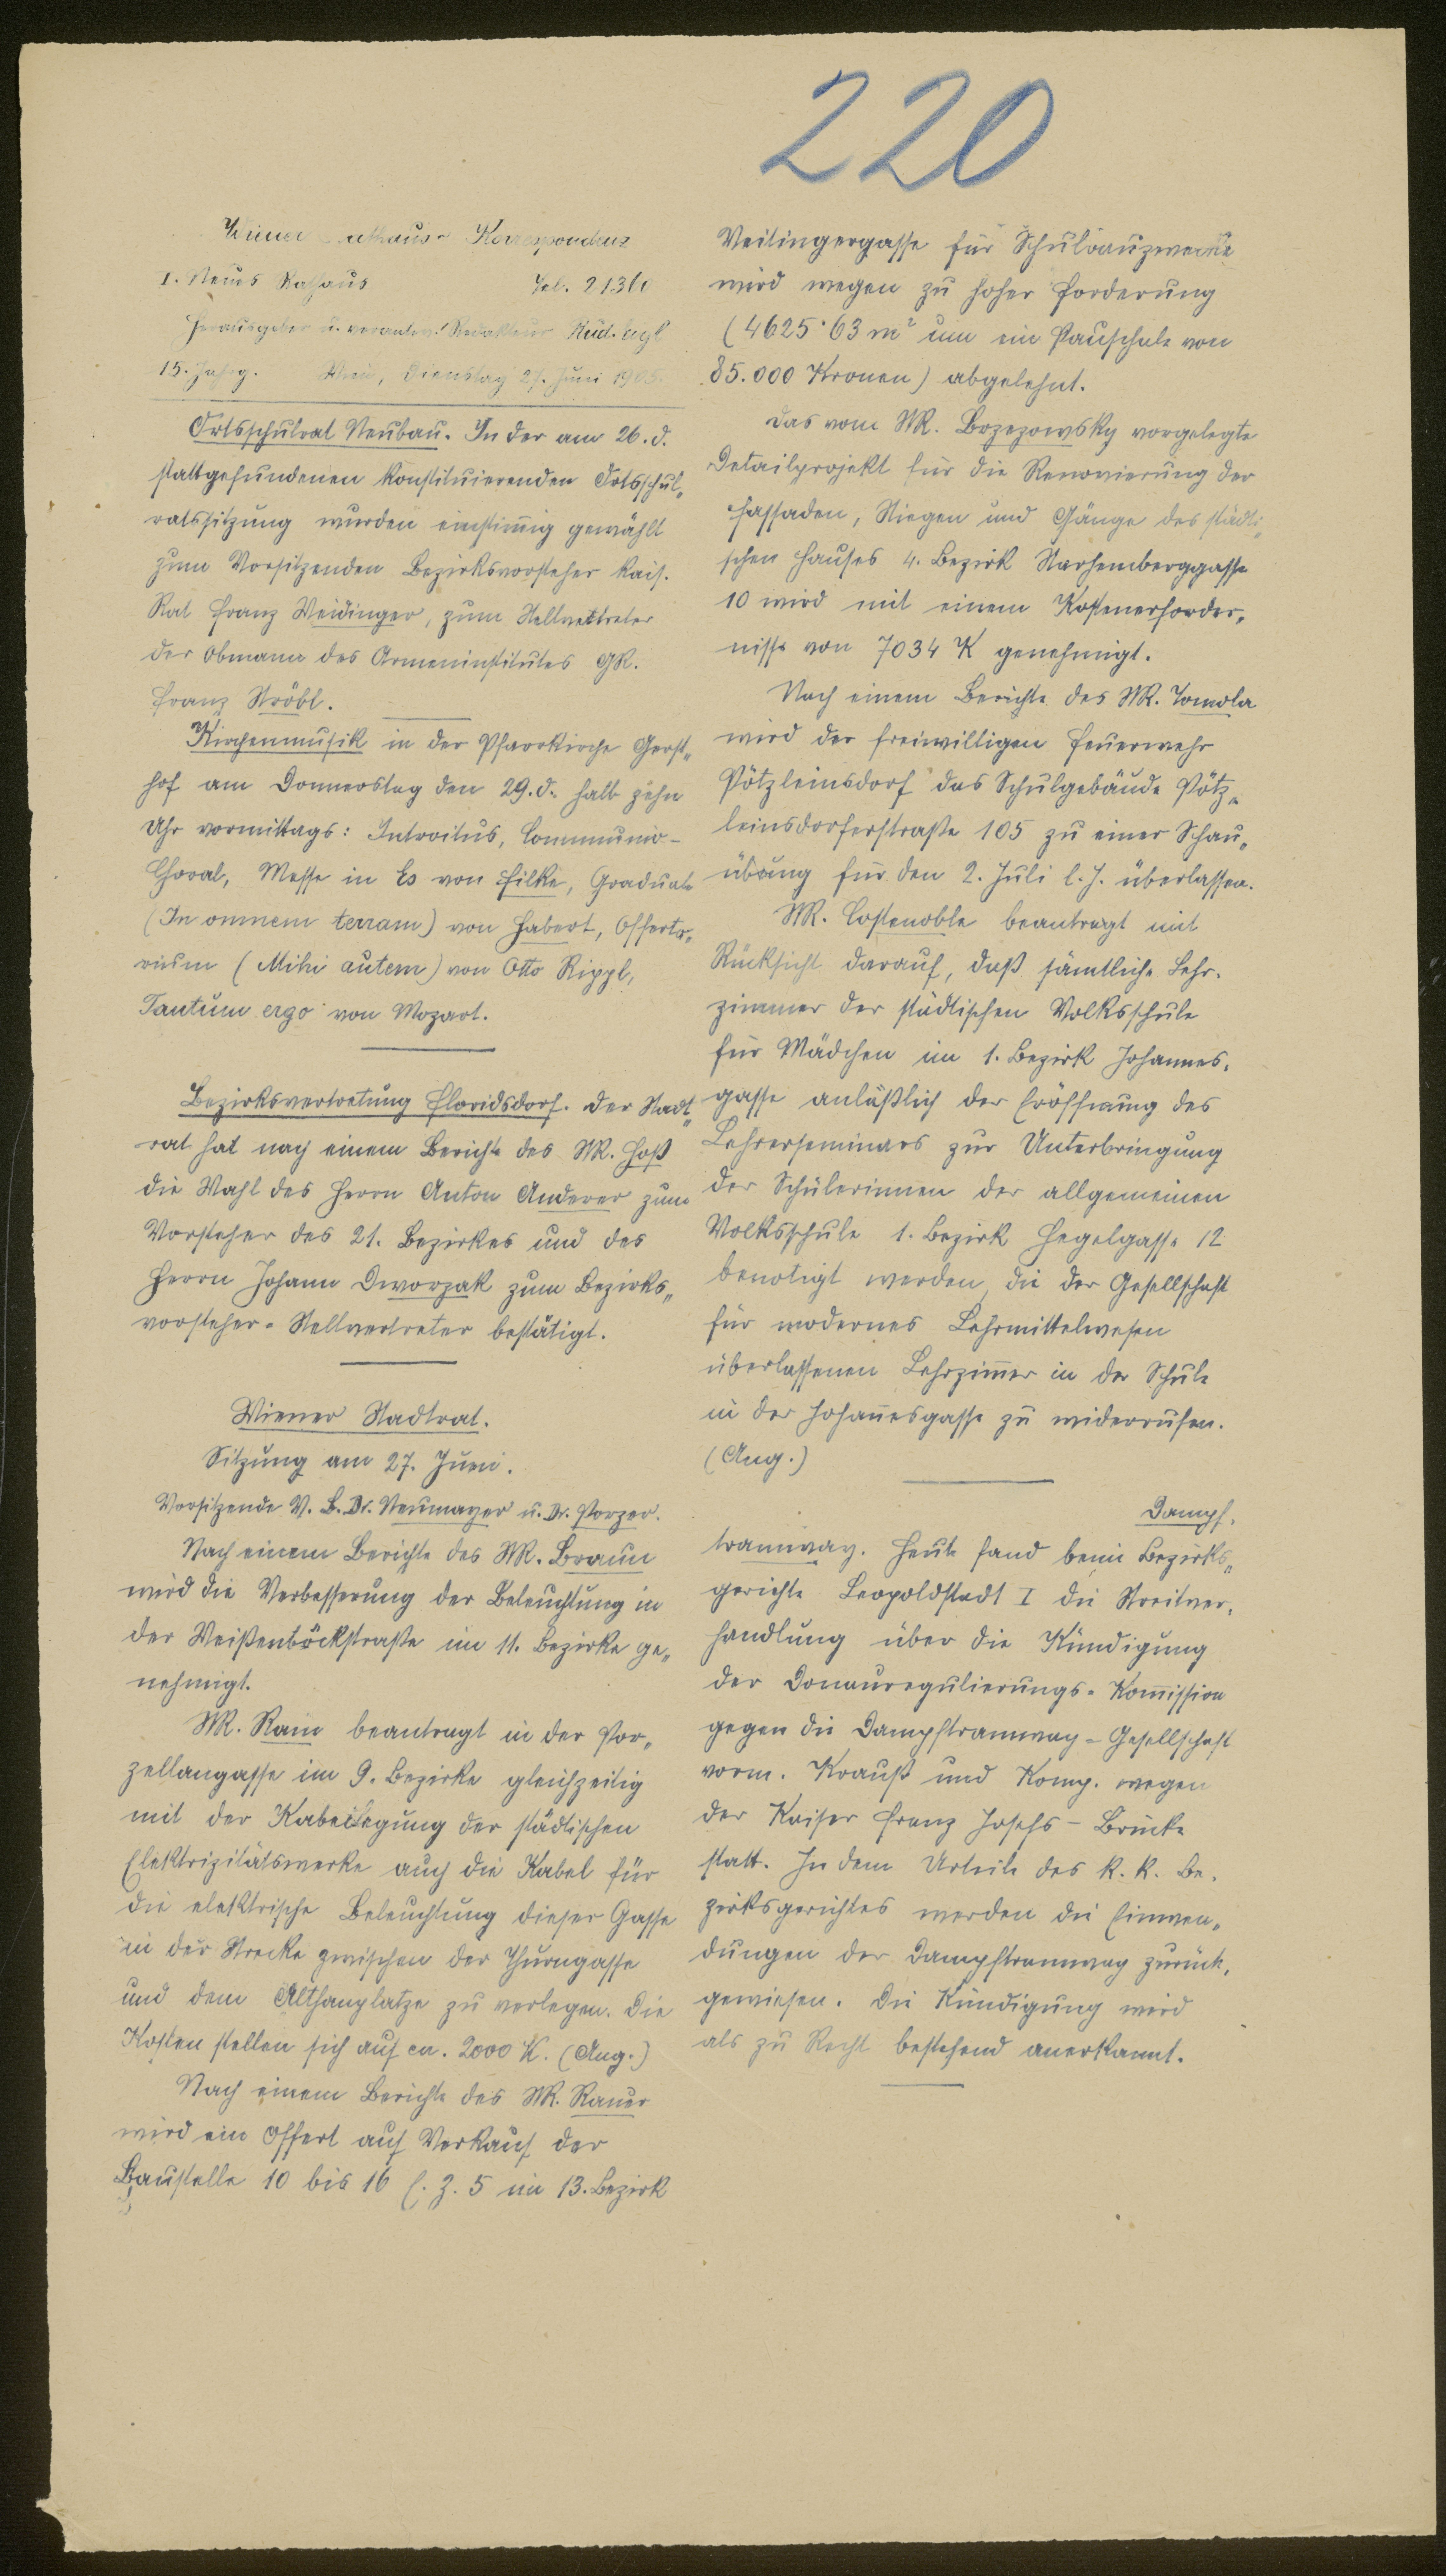 220
Wiener Rathaus-Korrespondenz
I. Neues Rathaus Tel. 21360
Herausgeber u. verantw. Redakteur Rud. Eigl
15. Jahrg. Wien, Dienstag 27. Juni 1905.
Ortsschulrat Neubau. In der am 26. d.
stattgefundenen konstituierenden Ortsschul„
ratssitzung wurden einstimig gewählt
zum Vorsitzenden Bezirksvorsteher kais.
Rat Franz Weidinger, zum Stellvertreter
der Obmann des Armeninstitutes GR.
Franz Ströbl.
Kirchenmusik in der Pfarrkirche Gerst„
hof am Donnerstag den 29. d. halb zehn
Uhr vormittags: Introitus, Communio-
Choral, Messe in Es von Filke, Graduale
(In omnem terram) von Habert, Offerto„
rium (Mihi autem) von Otto Rippl,
Tantum ergo von Mozart.
Bezirksvertretung Floridsdorf. Der Stadt„
rat hat nach einem Berichte des StR. Hoß
die Wahl des Herrn Anton Anderer zum
Vorsteher des 21. Bezirkes und des
Herrn Johann Dworzak zum Bezirks„
vorsteher-Stellvertreter bestätigt.
Wiener Stadtrat.
Sitzung am 27. Juni.
Vorsitzende V. B. Dr. Neumayer u. Dr. Porzer.
Nach einem Berichte des StR. Braun
wird die Verbesserung der Beleuchtung in
der Weißenböckstraße im 11. Bezirke ge„
nehmigt.
StR. Rain beantragt in der Por„
zellangasse im 9. Bezirke gleichzeitig
mit der Kabellegung der städtischen
Elektrizitätswerke auch die Kabel für
die elektrische Beleuchtung dieser Gasse
in der Strecke zwischen der Thurngasse
und dem Althanplatze zu verlegen. Die
Kosten stellen sich auf ca. 2000 K. (Ang.)
Nach einem Berichte des StR. Rauer
wird ein Offert auf Verkauf der
Baustelle 10 bis 16 E. Z. 5 im 13. Bezirk
Veitingergasse für Schulbauzwecke
wird wegen zu hoher Forderung
(4625·63 m² um ein Pauschale von
85.000 Kronen) abgelehnt.
Das vom StR. Brzezowsky vorgelegte
Detailprojekt für die Renovierung der
Fassaden, Stiegen und Gänge des städti„
schen Hauses 4. Bezirk Starhemberggasse
10 wird mit einem Kostenerforder„
nisse von 7034 K genehmigt.
Nach einem Berichte des StR. Tomola
wird der freiwilligen Feuerwehr
Pötzleinsdorf das Schulgebäude Pötz„
leinsdorferstraße 105 zu einer Schau„
übung für den 2. Juli l. J. überlassen.
StR. Costenoble beantragt mit
Rücksicht darauf, daß sämtliche Lehr„
zimmer der städtischen Volksschule
für Mädchen im 1. Bezirk Johannes„
gasse anläßlich der Eröffnung des
Lehrerseminars zur Unterbringung
der Schülerinnen der allgemeinen
Volksschule 1. Bezirk Hegelgasse 12
benötigt werden, die der Gesellschaft
für modernes Lehrmittelwesen
überlassenen Lehrzimer in der Schule
in der Johanesgasse zu widerrufen.
(Ang.)
Dampf„
tramway. Heute fand beim Bezirks„
gerichte Leopoldstadt I die Streitver„
handlung über die Kündigung
der Donauregulierungs-Komission
gegen die Dampftramway-Gesellschaft
vorm. Krauß und Komp. wegen
der Kaiser Franz Josefs-Brücke
statt. In dem Urteile des k. k. Be„
zirksgerichtes werden die Einwen„
dungen der Dampftramway zurück„
gewiesen. Die Kündigung wird
als zu Recht bestehend anerkannt.